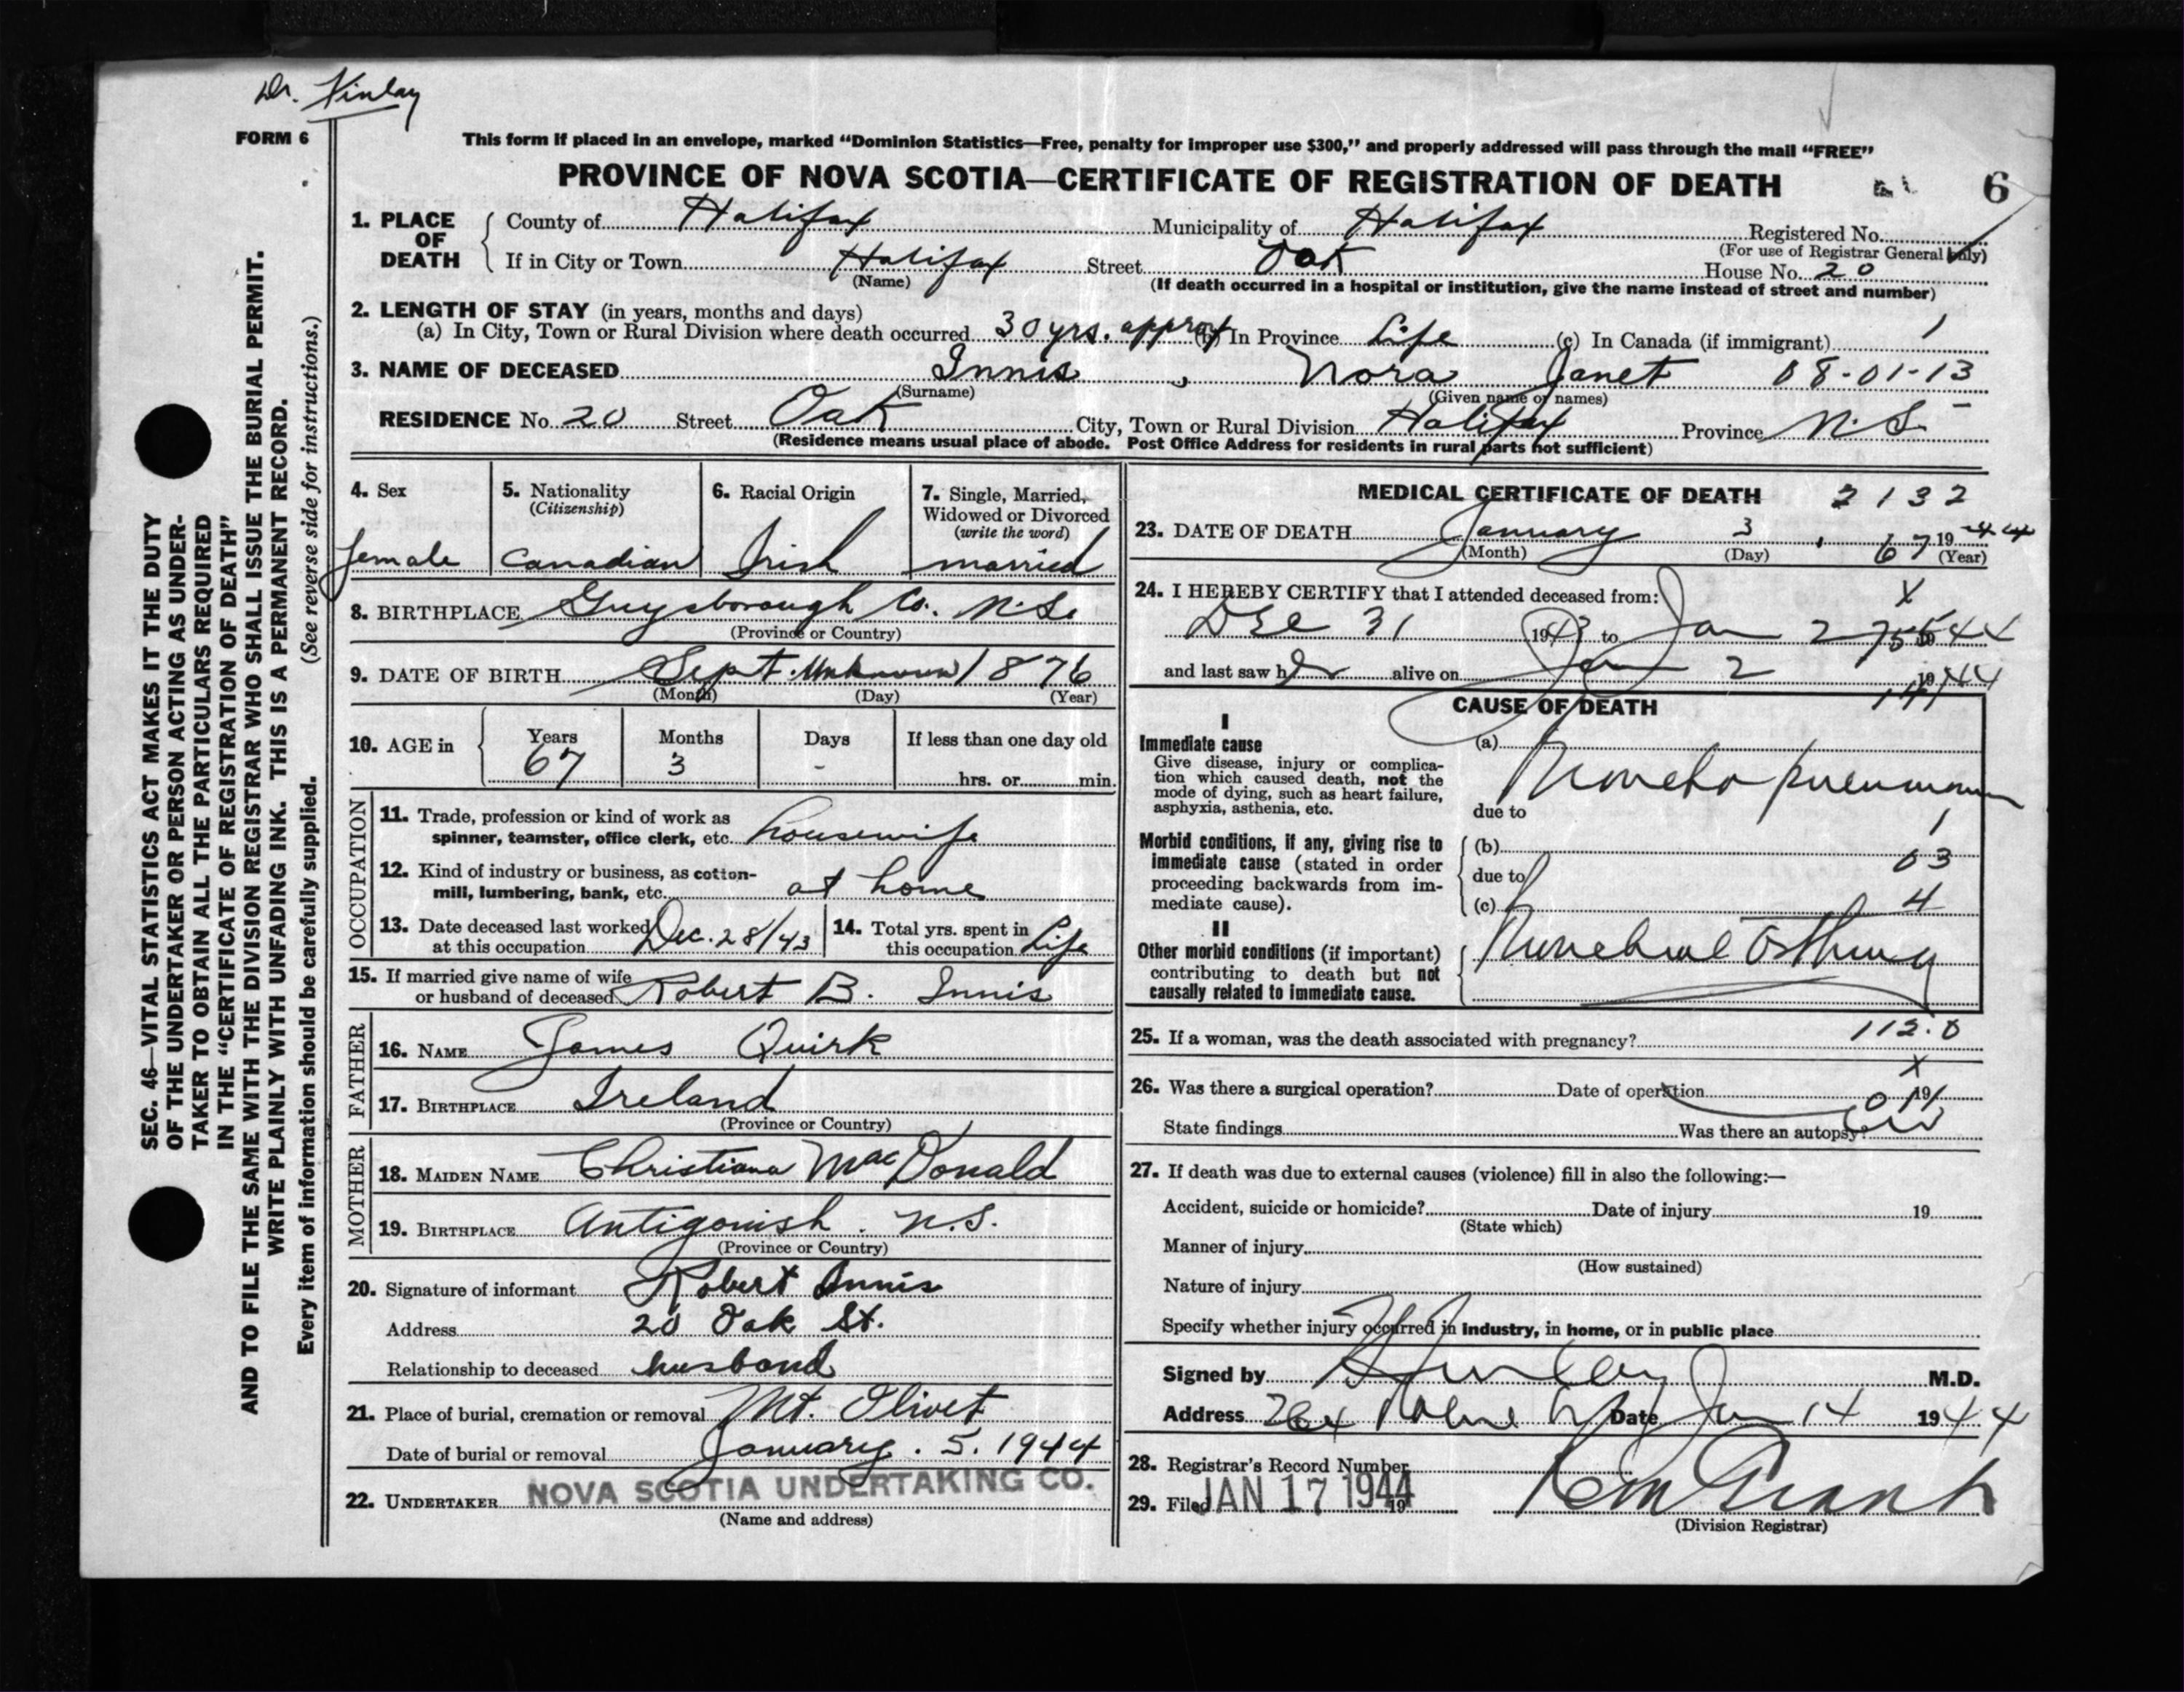 Dr. Finlay
FORM 6
This form if placed in an envelope, marked “Dominion Statistics—Free, penalty for improper use $300,” and properly addressed will pass through the mail “FREE”
PROVINCE OF NOVA SCOTIA—CERTIFICATE OF REGISTRATION OF DEATH 6
1. PLACE OF DEATH County of Halifax Municipality of Halifax Registered No.
(For use of Registrar General only)
If in City or Town Halifax Street Oak House No. 20
(Name) (If death occurred in a hospital or institution, give the name instead of street and number)
2. LENGTH OF STAY (in years, months and days)
(a) In City, Town or Rural Division where death occurred 30 yrs. approx (b) In Province Life (c) In Canada (if immigrant)
3. NAME OF DECEASED Innis , Nora Janet 08-01-13
(Surname) (Given name or names)
RESIDENCE No. 20 Street Oak City, Town or Rural Division Halifax Province N.S.
(Residence means usual place of abode. Post Office Address for residents in rural parts not sufficient)
4. Sex female
5. Nationality (Citizenship) Canadian
6. Racial Origin Irish
7. Single, Married, Widowed or Divorced (write the word) married
8. BIRTHPLACE Guysborough Co. N.S.
(Province or Country)
9. DATE OF BIRTH Sept. Unknown 1876
(Month) (Day) (Year)
10. AGE in Years 67 Months 3 Days - If less than one day old hrs. or min.
OCCUPATION
11. Trade, profession or kind of work as
spinner, teamster, office clerk, etc. housewife
12. Kind of industry or business, as cotton-
mill, lumbering, bank, etc. at home
13. Date deceased last worked at this occupation Dec. 28/43
14. Total yrs. spent in this occupation Life
15. If married give name of wife
or husband of deceased Robert B. Innis
FATHER
16. NAME James Quirk
17. BIRTHPLACE Ireland
(Province or Country)
MOTHER
18. MAIDEN NAME Christiana MacDonald
19. BIRTHPLACE Antigonish. N.S.
(Province or Country)
20. Signature of informant Robert Innis
Address 20 Oak St.
Relationship to deceased husband
21. Place of burial, cremation or removal Mt. Olivet
Date of burial or removal January. 5. 1944
22. UNDERTAKER NOVA SCOTIA UNDERTAKING CO.
(Name and address)
MEDICAL CERTIFICATE OF DEATH 2132
23. DATE OF DEATH January 3 67 1944
(Month) (Day) (Year)
24. I HEREBY CERTIFY that I attended deceased from: X
Dec 31 1943 to Jan 2 1944
and last saw her alive on Jan 2 1944
CAUSE OF DEATH
I
Immediate cause
Give disease, injury or complica-
tion which caused death, not the
mode of dying, such as heart failure,
asphyxia, asthenia, etc.
(a) Broncho pneumonia
due to
Morbid conditions, if any, giving rise to
immediate cause (stated in order
proceeding backwards from im-
mediate cause).
(b) 03
due to
(c) 4
II
Other morbid conditions (if important)
contributing to death but not
causally related to immediate cause.
Bronchial Asthma
25. If a woman, was the death associated with pregnancy? 112.0
X
26. Was there a surgical operation? Date of operation 19
State findings Was there an autopsy?
27. If death was due to external causes (violence) fill in also the following:—
Accident, suicide or homicide? Date of injury 19
(State which)
Manner of injury
(How sustained)
Nature of injury
Specify whether injury occurred in industry, in home, or in public place
Signed by Finlay M.D.
Address Date Jan 14 1944
28. Registrar's Record Number
29. Filed JAN 17 1944 19
(Division Registrar)
SEC. 46—VITAL STATISTICS ACT MAKES IT THE DUTY
OF THE UNDERTAKER OR PERSON ACTING AS UNDER-
TAKER TO OBTAIN ALL THE PARTICULARS REQUIRED
IN THE “CERTIFICATE OF REGISTRATION OF DEATH”
AND TO FILE THE SAME WITH THE DIVISION REGISTRAR WHO SHALL ISSUE THE BURIAL PERMIT.
WRITE PLAINLY WITH UNFADING INK. THIS IS A PERMANENT RECORD.
Every item of information should be carefully supplied. (See reverse side for instructions.)